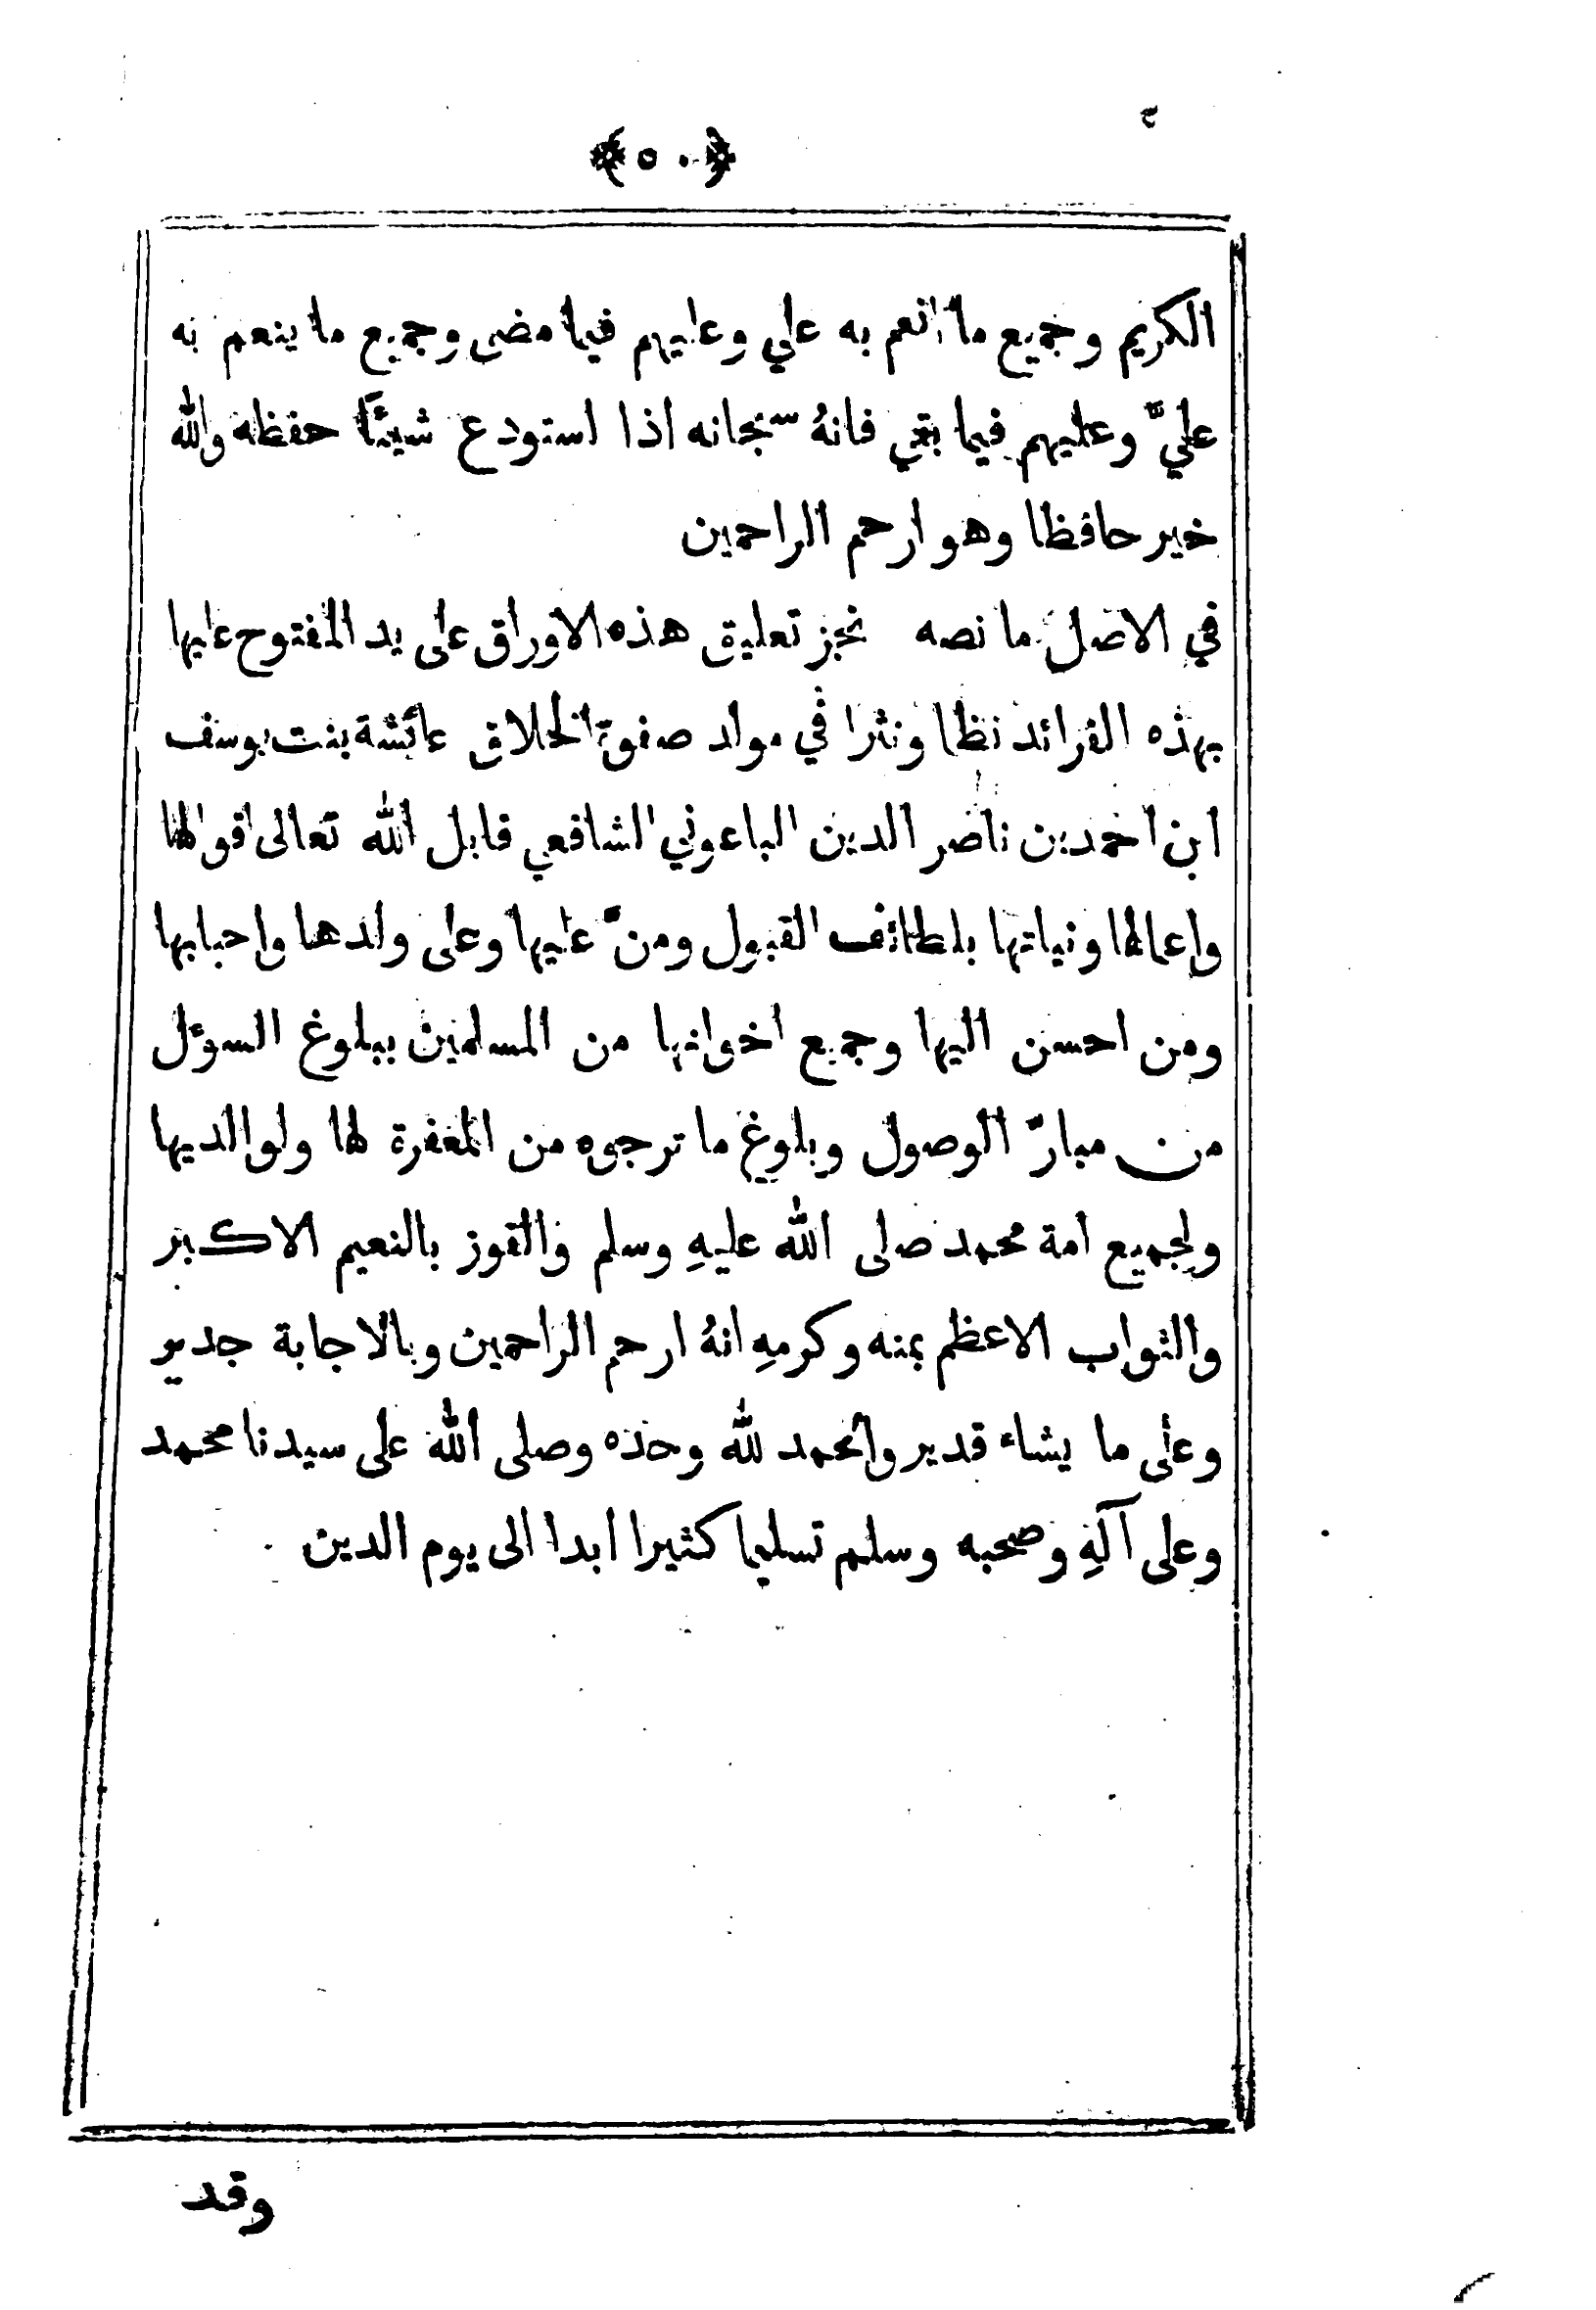 ﴿٥٠﴾
الكريم وجميع ما انعم به علي وعليهم فيما مضى وجميع ما ينعم به
عليّ وعليهم فيما بقي فانهُ سبحانه اذا استودع شيئًا حفظه والله
خير حافظا وهو ارحم الراحمين
في الاصل ما نصه نجز تعليق هذه الاوراق على يد المفتوح عليها
بهذه الفرائد نظما ونثرا في مولد صفوة الخلاق عائشة بنت يوسف
ابن احمد بن ناصر الدين الباعوني الشافعي قابل الله تعالى اقوالها
واعمالها ونياتها بلطائف القبول ومنّ عليها وعلى ولدها واحبابها
ومن احسن اليها وجميع اخوانها من المسلمين ببلوغ السوؤل
من مبارّ الوصول وبلوغ ما ترجوه من المغفرة لها ولوالديها
ولجميع امة محمد صلى الله عليهِ وسلم والفوز بالنعيم الاكبر
والثواب الاعظم بمنه وكرمهِ انهُ ارحم الراحمين وبالاجابة جدير
وعلى ما يشاء قدير والحمد لله وحده وصلى الله على سيدنا محمد
وعلى آلهِ وصحبه وسلم تسليما كثيرا ابدا الى يوم الدين
وقد